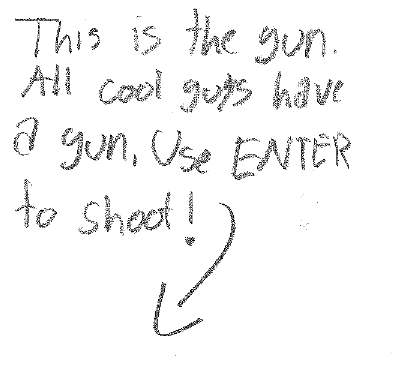 This is the gun.
All cool guys have
a gun. Use ENTER
to shoot!